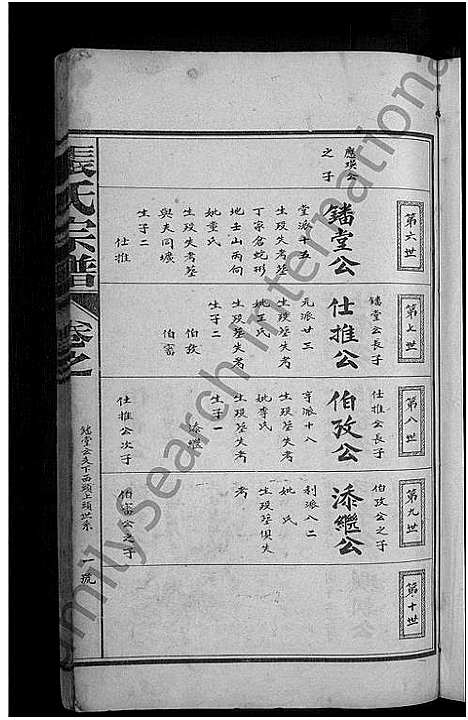 第六世
應瑛公
之子
鐇堂公
堂派十五
生歿失考墓
丁家倉蛇形
地壬山丙向
妣童氏
生歿失考墓
與夫同壙
生子二
仕推
第七世
鐇堂公長子
仕推公
元派廿三
生歿墓失考
妣王氏
生歿墓失考
生子二
伯孜
伯富
第八世
仕推公長子
伯孜公
亨派十八
生歿墓失考
妣李氏
生歿墓失考
生子一
添繼
仕推公次子
第九世
伯孜公之子
添繼公
利派八二
妣 氏
生歿墓俱失
考
伯富公之子
第十世
張氏宗譜
卷之
鐇堂公支下西頭上頭世系
一號
familysearch International